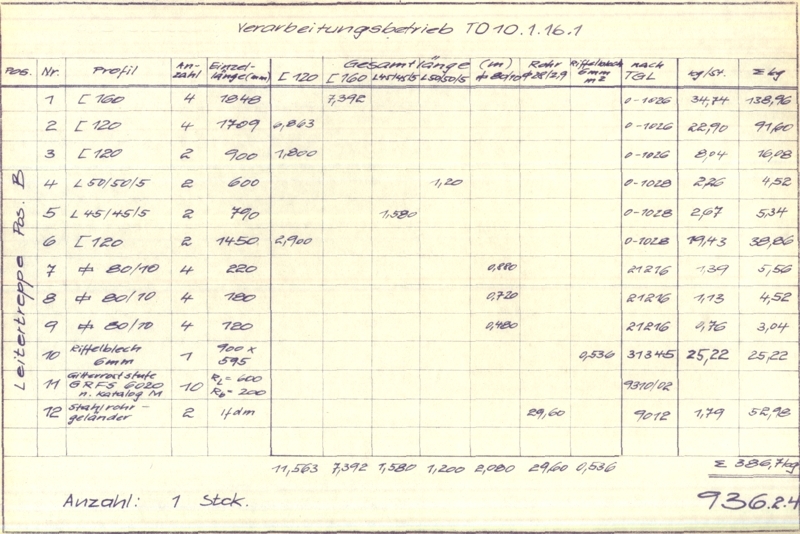 Verarbeitungsbetrieb TO 10.1.16.1
Pos. Nr. Profil An- zahl Einzel- länge (mm) Gesamtlänge (m) [ 120 [ 160 L45/45/5 L50/50/5 ⌀ 80/10 Rohr Riffelblech 6mm m2 nach TGL kg/St. Σ kg
Leitertreppe Pos. B
1 [ 160 4 1848 7,392 0-1026 34,74 138,96
2 [ 120 4 1709 6,863 0-1026 22,90 91,60
3 [ 120 2 900 1,800 0-1026 8,04 16,08
4 L 50/50/5 2 600 1,20 0-1028 2,26 4,52
5 L 45/45/5 2 790 1,580 0-1028 2,67 5,34
6 [ 120 2 1450 2,900 0-1028 19,43 38,86
7 ⌀ 80/10 4 220 0,880 21216 1,39 5,56
8 ⌀ 80/10 4 180 0,720 21216 1,13 4,52
9 ⌀ 80/10 4 120 0,480 21216 0,76 3,04
10 Riffelblech 6mm 1 900 x 595 0,536 31345 25,22 25,22
11 Gitterroststufe GRFS 6020 n. Katalog M 10 RL = 600 RB = 200 9310/02
12 Stahlrohr- geländer 2 lfdm 29,60 9012 1,79 52,98
11,563 7,392 1,580 1,200 2,080 29,60 0,536 Σ 386,7kg
Anzahl: 1 Stck. 936.2.4